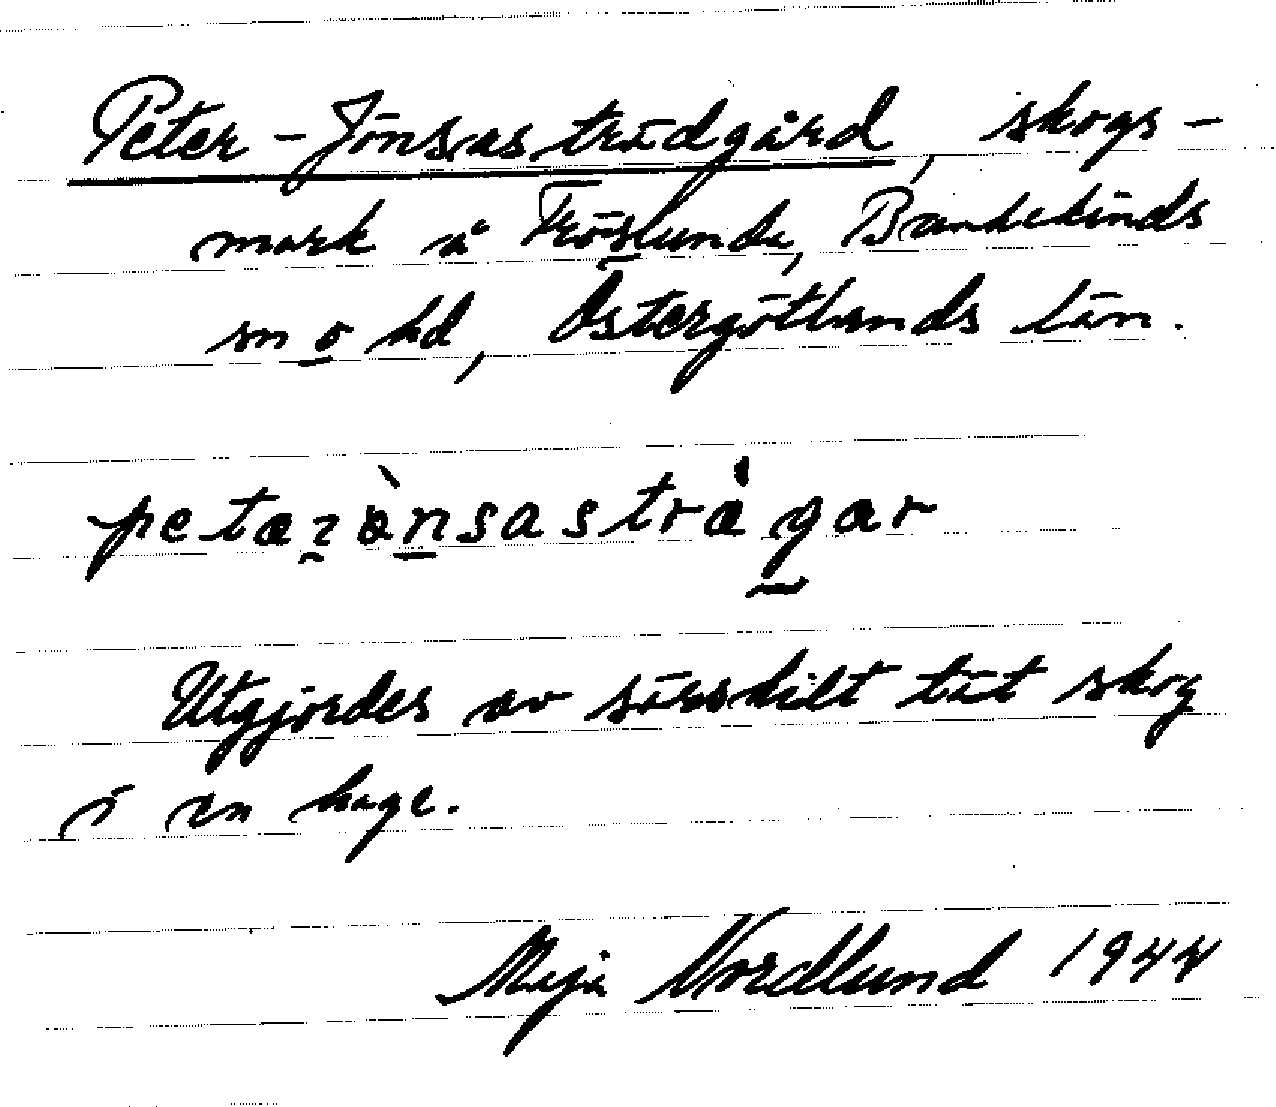 Peter-Jönsas trädgård, skogs-
mark å Fröslunda, Bankekinds
sn o hd, Östergötlands län.
petazònsastràgar
Utgjordes av särskilt tät skog
i en hage.
Maja Nordlund 1944